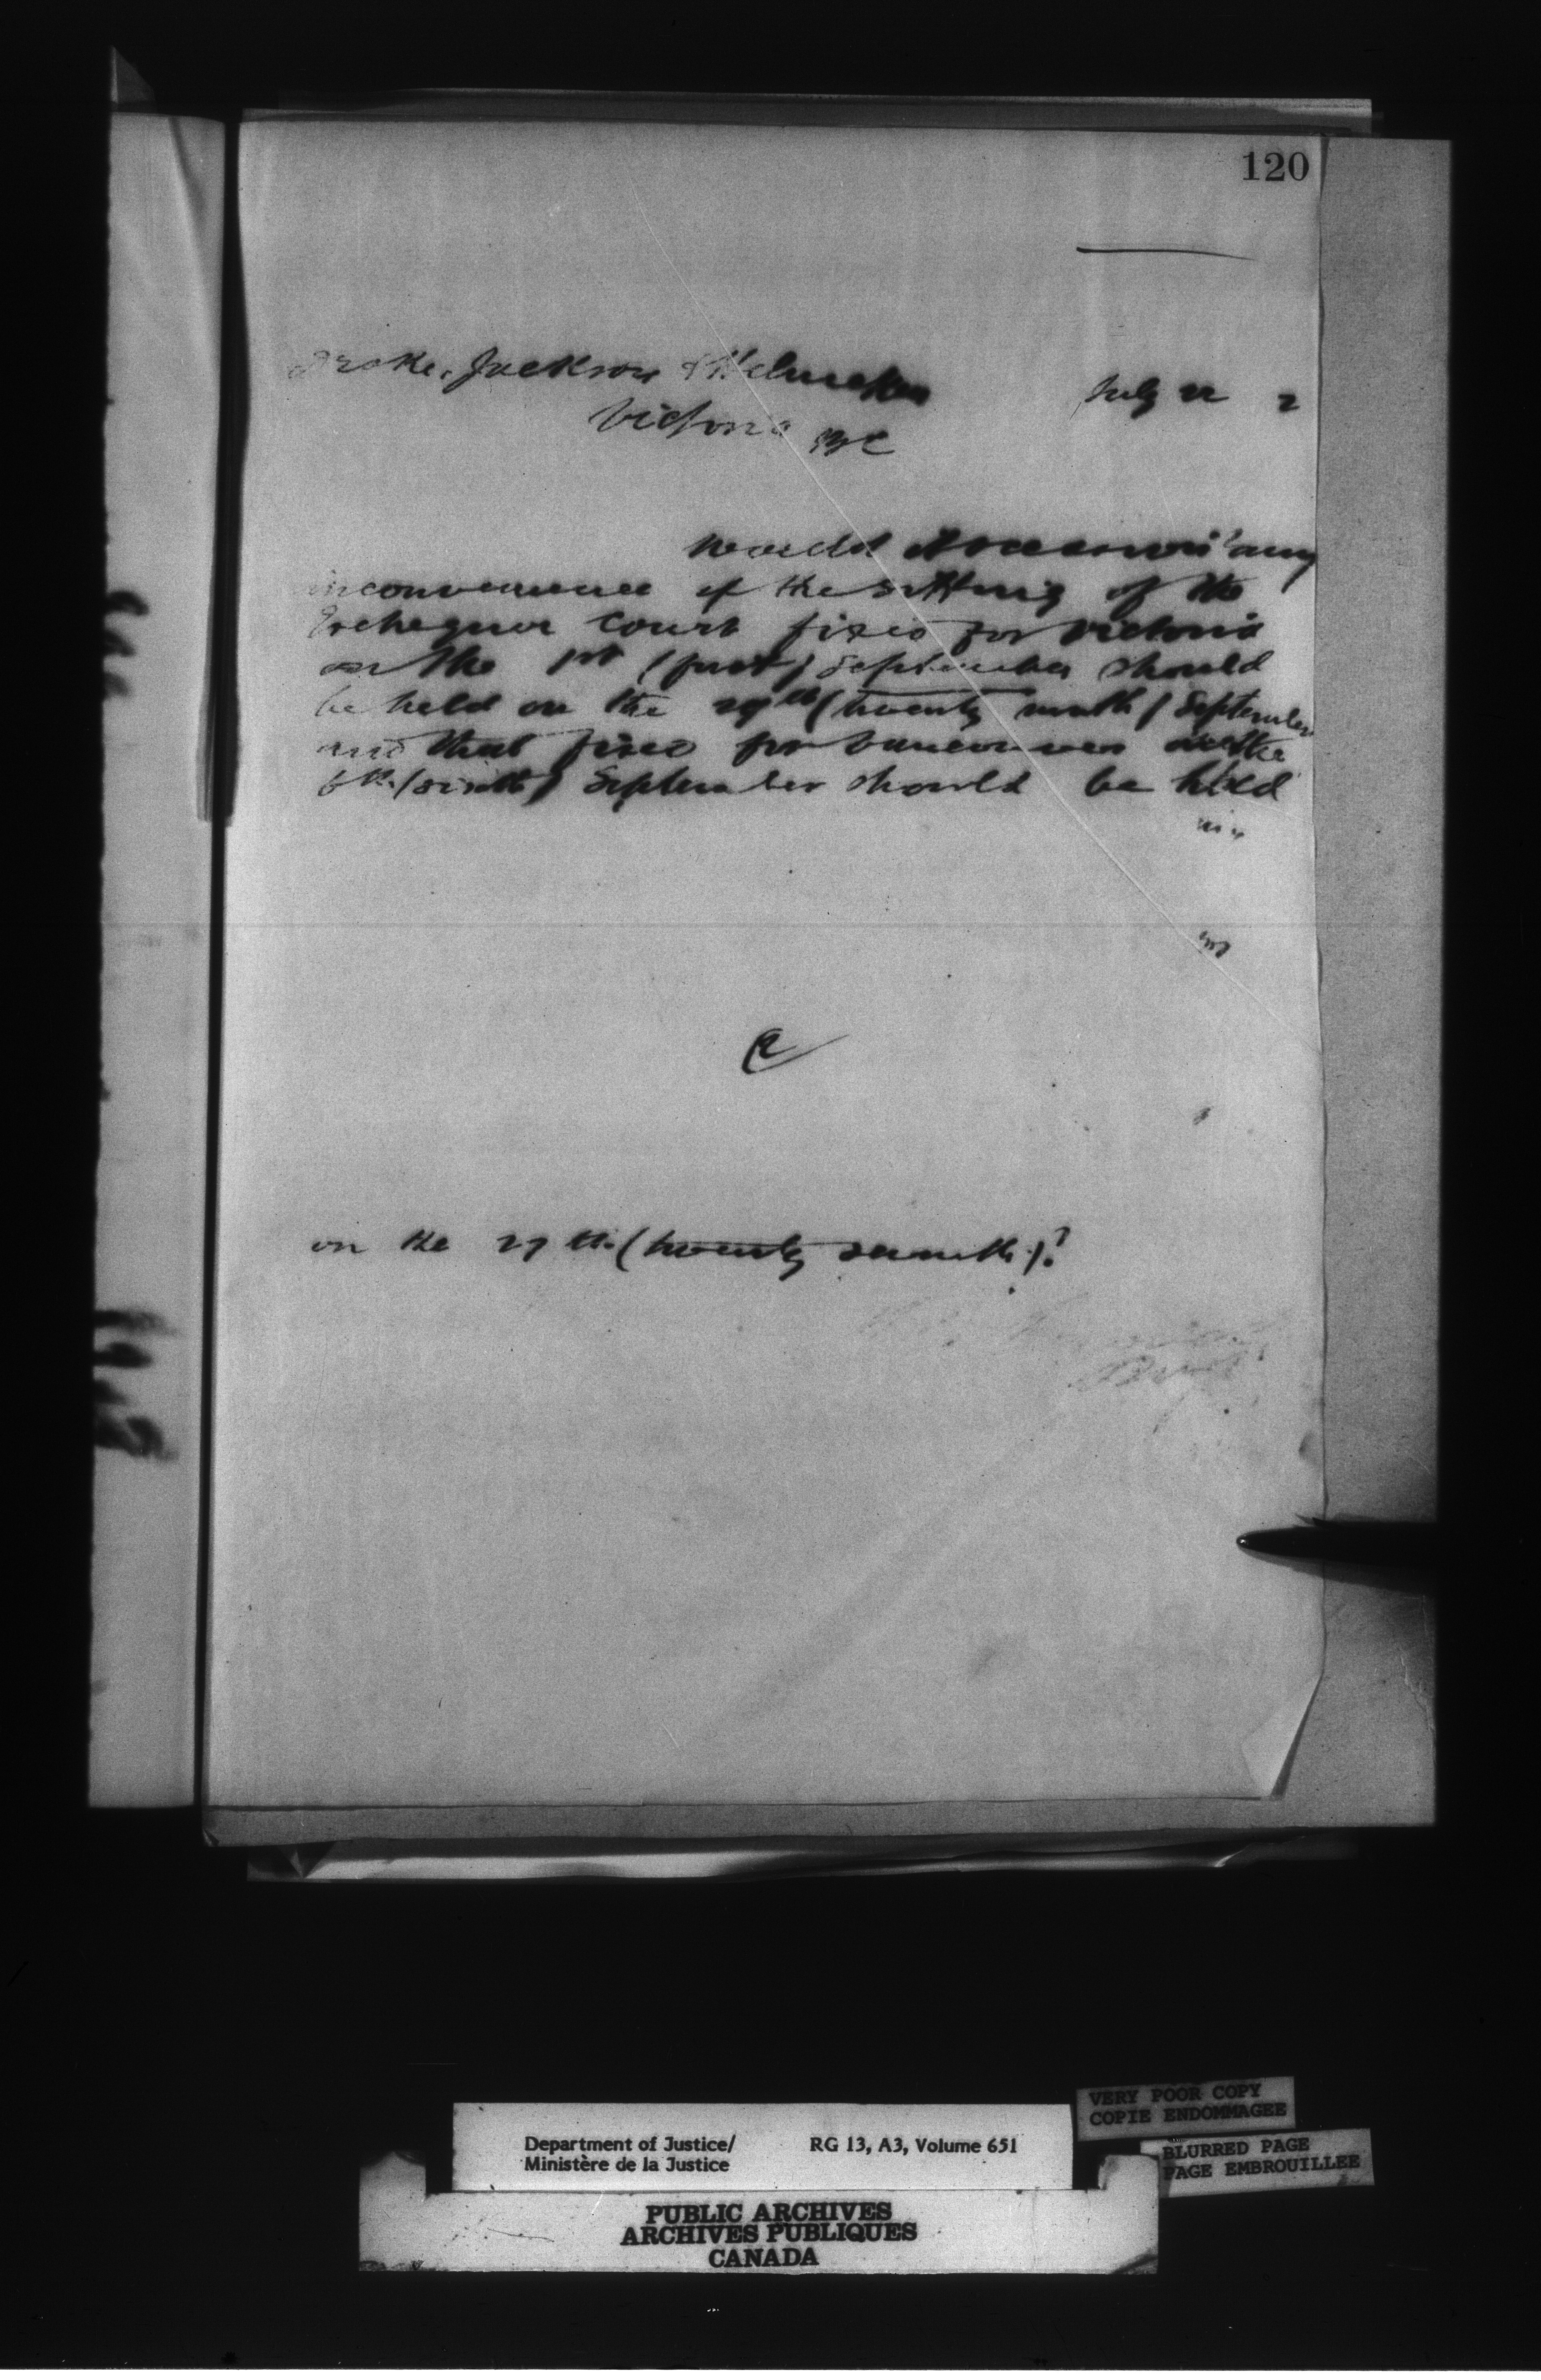 120
Drake, Jackson & Helmcken
July 22 2
Victoria BC
Would it occasion any
inconvenience if the sitting of the
Exchequer Court fixed for Victoria
on the 1st (first) September should
be held on the 29th (twenty ninth) September
and that fixed for Vancouver on the
6th (sixth) September should be held
on the 27th (twenty seventh)?
VERY POOR COPY
COPIE ENDOMMAGEE
Department of Justice/ RG 13, A3, Volume 651
Ministère de la Justice
BLURRED PAGE
PAGE EMBROUILLEE
PUBLIC ARCHIVES
ARCHIVES PUBLIQUES
CANADA